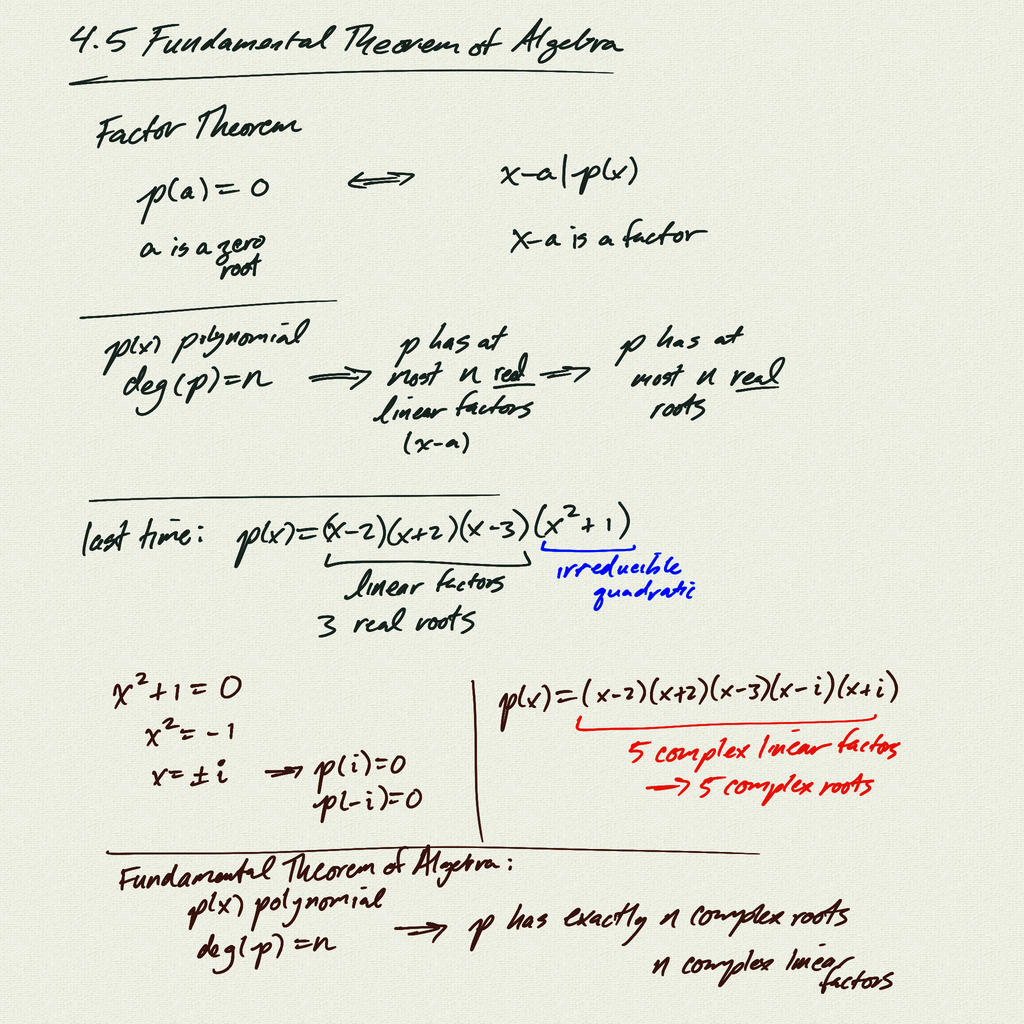 4.5 Fundamental Theorem of Algebra
Factor Theorem
p(a) = 0 ⟺ x-a | p(x)
a is a zero
root
x-a is a factor
p(x) polynomial
deg(p) = n ⟹
p has at
most n real ⟹
linear factors
(x-a)
p has at
most n real
roots
last time: p(x) = (x-2)(x+2)(x-3)(x²+1)
linear factors
3 real roots
irreducible
quadratic
x²+1 = 0
x² = -1
x = ± i → p(i) = 0
p(-i) = 0
p(x) = (x-2)(x+2)(x-3)(x-i)(x+i)
5 complex linear factors
→ 5 complex roots
Fundamental Theorem of Algebra:
p(x) polynomial
deg(p) = n ⟹ p has exactly n complex roots
n complex linear
factors